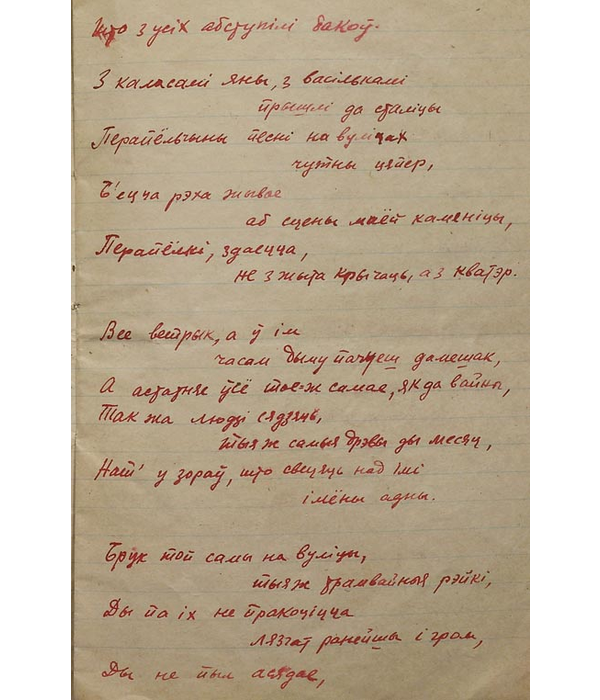 Што з усіх абступілі бакоў.
З каласамі яны, з васількамі
прышлі да сталіцы
Перапёлчыны песні на вуліцах
чутны цяпер,
Б'ецца рэха жывое
аб сцены маёй каменіцы,
Перапёлкі, здаецца,
не з жыта крычаць, а з кватэр.
Вее ветрык, а ў ім
часам дыму пачуеш дамешак,
А астатняе ўсё тое-ж самае, як да вайны,
Так жа людзі сядзяць,
тыя ж самыя дрэвы ды месяц,
Нат' у зораў, што свецяць над імі
імёны адны.
Брук той самы на вуліцы,
тыя ж трамвайныя рэйкі,
Ды па іх не пракоціцца
лязгат ранейшы і гром,
Ды не пыл асядае,